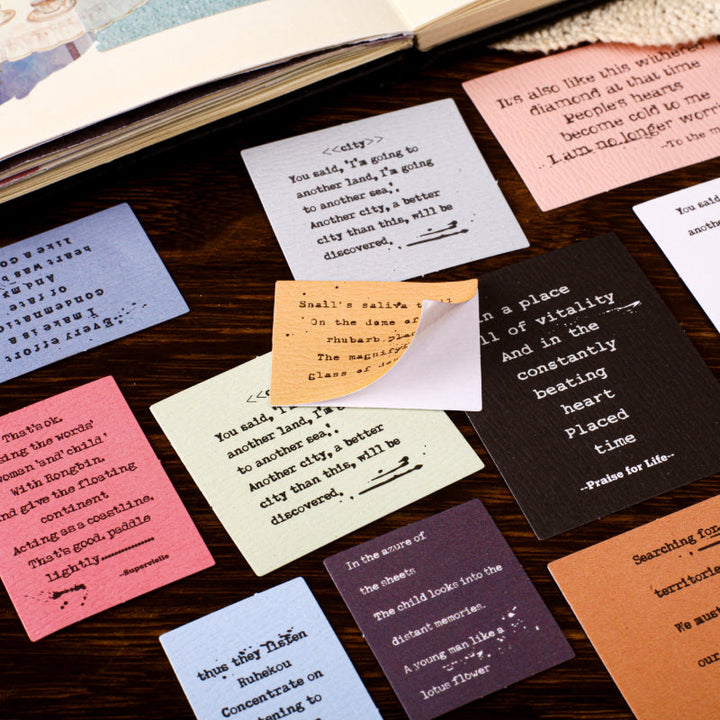 <<city>>
You said, 'I'm going to
another land, I'm going
to another sea.'
Another city, a better
city than this, will be
discovered,
It's also like this withered
diamond at that time
People's hearts
become cold to me
I am no longer
--To the
You said
Every effort
I make is a
or fate
And my
heart was b
Snail's saliva
On the dome of
rhubarb
The
glass of
in a place
of vitality
And in the
constantly
beating
heart
Placed
time
--Praise for Life--
You said,
another land,
to another sea.'
Another city, a better
city than this, will be
discovered,
That's ok.
the words'
and' child'
With Rongbin.
and give the floating
continent
Acting as a coastline.
That's good, paddle
lightly
--Supervielle
In the azure of
the sheets
The child looks into the
distant memories.
A young man like a
lotus flower
Searching
We
our
thus they listen
Ruhekou
Concentrate on
to